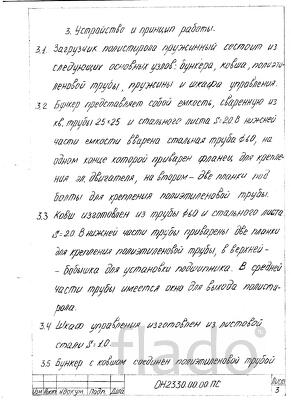 3. Устройство и принцип работы.
3.1. Загрузчик полистирола пружинный состоит из
следующих основных узлов: бункера, ковша, полиэти-
леновой трубы, пружины и шкафа управления.
3.2 Бункер представляет собой емкость, сваренную из
кв. трубы 25×25 и стального листа S=2.0 В нижней
части емкости вварена стальная труба ф60, на
одном конце которой приварен фланец для крепле-
ния эл. двигателя, на втором - две планки под
болты для крепления полиэтиленовой трубы.
3.3 Ковш изготовлен из трубы ф60 и стального листа
S=2.0 В нижней части трубы приварены две планки
для крепления полиэтиленовой трубы, в верхней-
- бобышка для установки подшипника. В средней
части трубы имеется окно для выхода полисти-
рола.
3.4 Шкаф управления изготовлен из листовой
стали S=1.0
3.5 Бункер с ковшом соединен полиэтиленовой трубой
flado
Изм Лист № докум. Подп. Дата
ОН2330.00.00 ПС
Лист
3